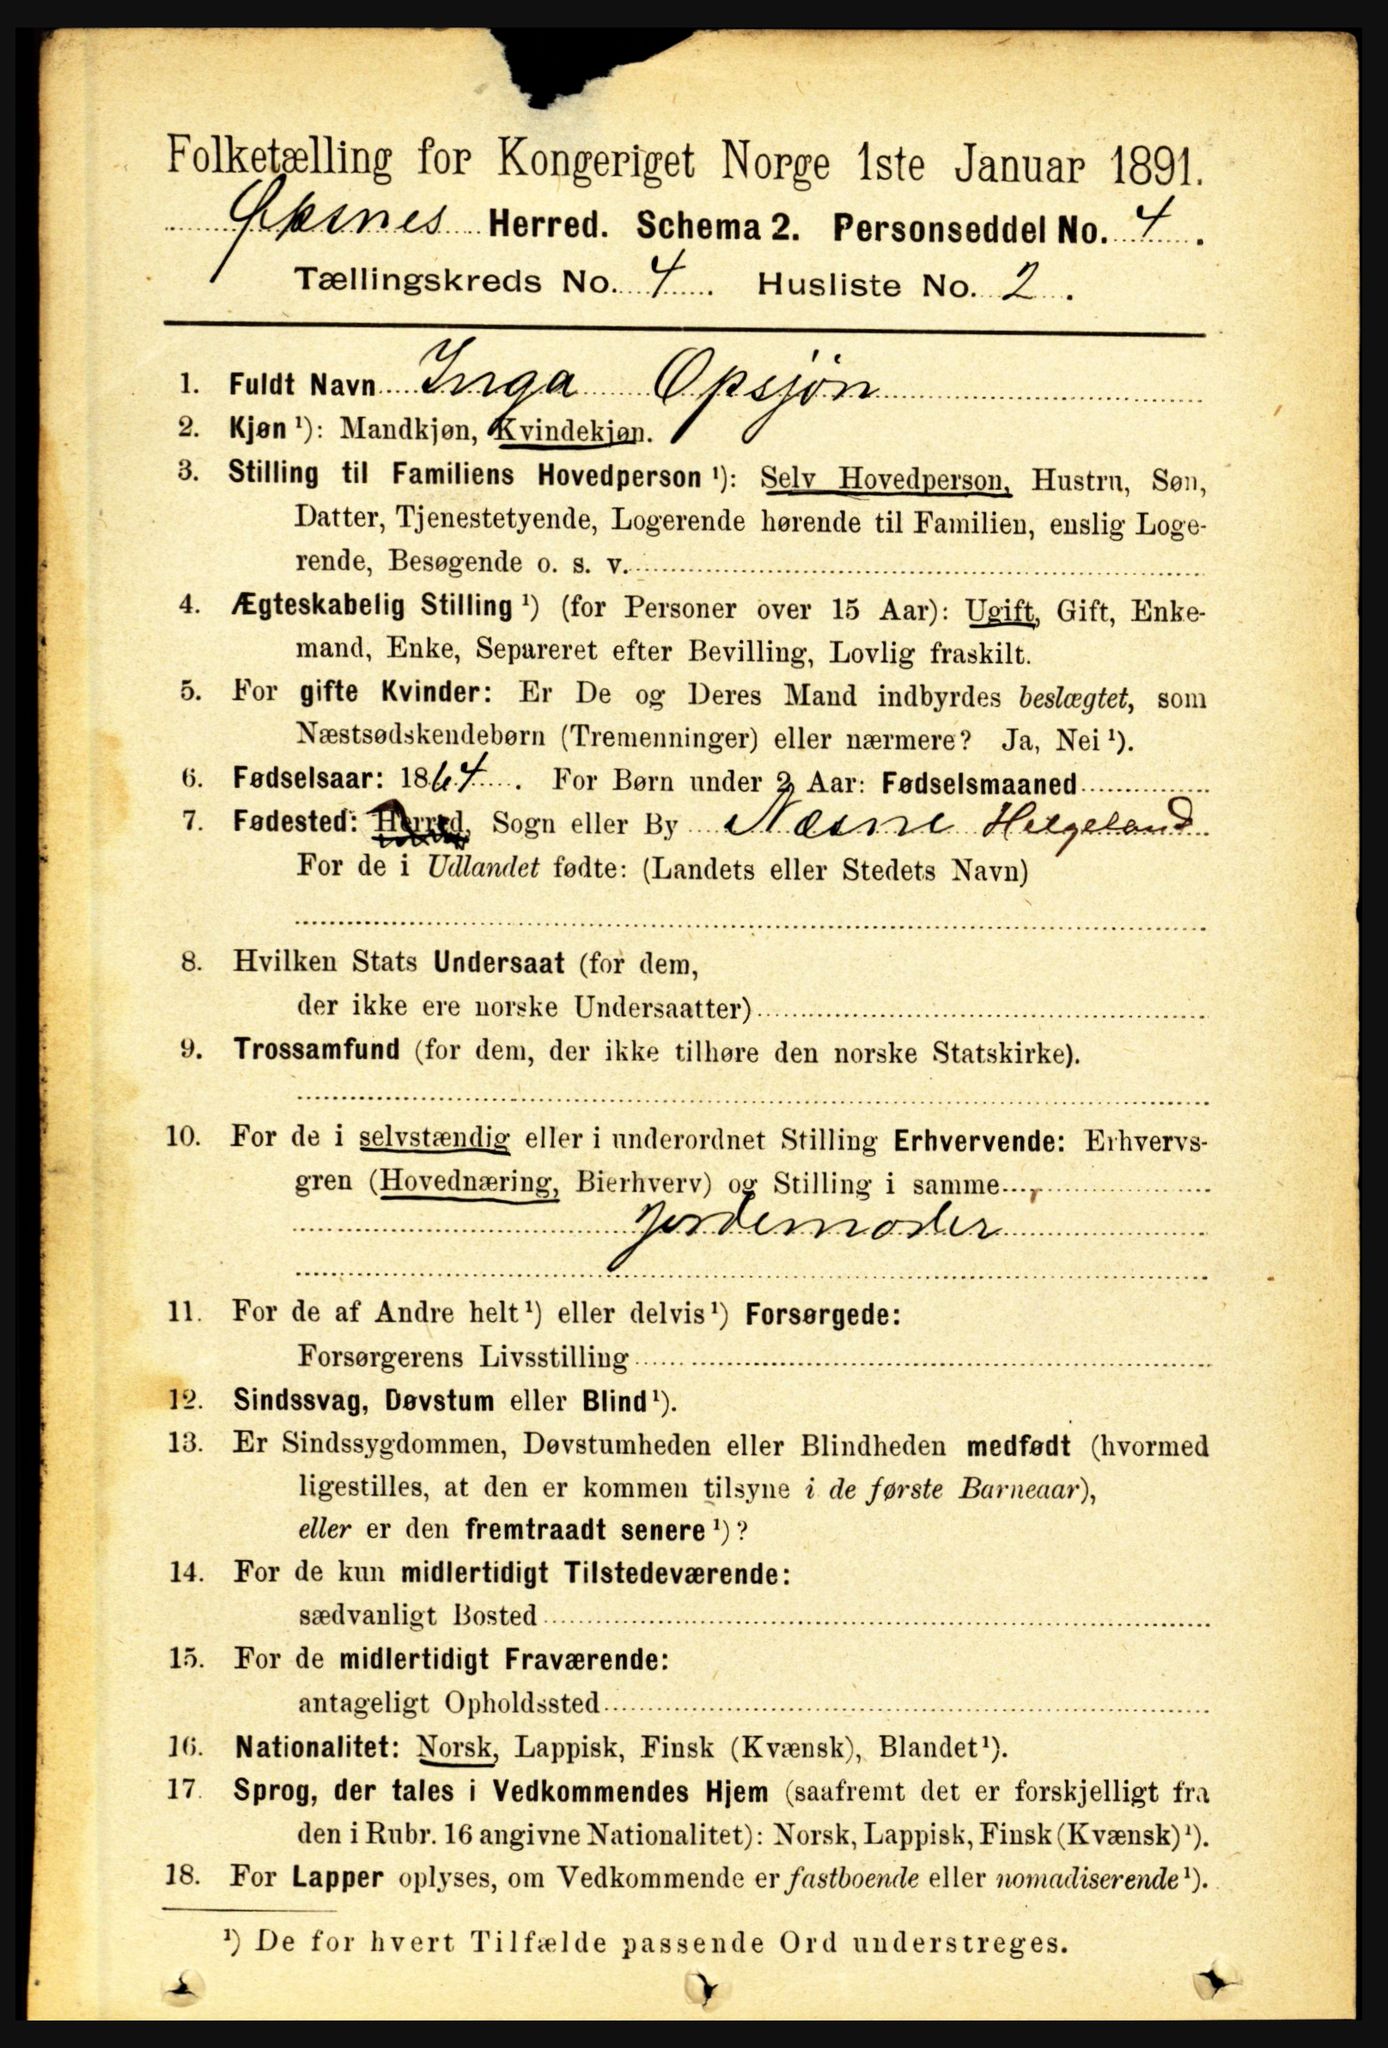 Folketælling for Kongeriget Norge 1ste Januar 1891.
Øksnes Herred. Schema 2. Personseddel No. 4.
Tællingskreds No. 4. Husliste No. 2.
1. Fuldt Navn Inga Opsjøn
2. Kjøn ¹): Mandkjøn, Kvindekjøn.
3. Stilling til Familiens Hovedperson ¹): Selv Hovedperson, Hustru, Søn,
Datter, Tjenestetyende, Logerende hørende til Familien, enslig Loge-
rende, Besøgende o. s. v.
4. Ægteskabelig Stilling ¹) (for Personer over 15 Aar): Ugift, Gift, Enke-
mand, Enke, Separeret efter Bevilling, Lovlig fraskilt.
5. For gifte Kvinder: Er De og Deres Mand indbyrdes beslægtet, som
Næstsødskendebørn (Tremenninger) eller nærmere? Ja, Nei ¹).
6. Fødselsaar: 1864. For Børn under 2 Aar: Fødselsmaaned
7. Fødested: Herred, Sogn eller By Næsne Helgeland
For de i Udlandet fødte: (Landets eller Stedets Navn)
8. Hvilken Stats Undersaat (for dem,
der ikke ere norske Undersaatter)
9. Trossamfund (for dem, der ikke tilhøre den norske Statskirke).
10. For de i selvstændig eller i underordnet Stilling Erhvervende: Erhvervs-
gren (Hovednæring, Bierhverv) og Stilling i samme
Jordemoder
11. For de af Andre helt ¹) eller delvis ¹) Forsørgede:
Forsørgerens Livsstilling
12. Sindssvag, Døvstum eller Blind ¹).
13. Er Sindssygdommen, Døvstumheden eller Blindheden medfødt (hvormed
ligestilles, at den er kommen tilsyne i de første Barneaar),
eller er den fremtraadt senere ¹)?
14. For de kun midlertidigt Tilstedeværende:
sædvanligt Bosted
15. For de midlertidigt Fraværende:
antageligt Opholdssted
16. Nationalitet: Norsk, Lappisk, Finsk (Kvænsk), Blandet ¹).
17. Sprog, der tales i Vedkommendes Hjem (saafremt det er forskjelligt fra
den i Rubr. 16 angivne Nationalitet): Norsk, Lappisk, Finsk (Kvænsk) ¹).
18. For Lapper oplyses, om Vedkommende er fastboende eller nomadiserende ¹).
¹) De for hvert Tilfælde passende Ord understreges.